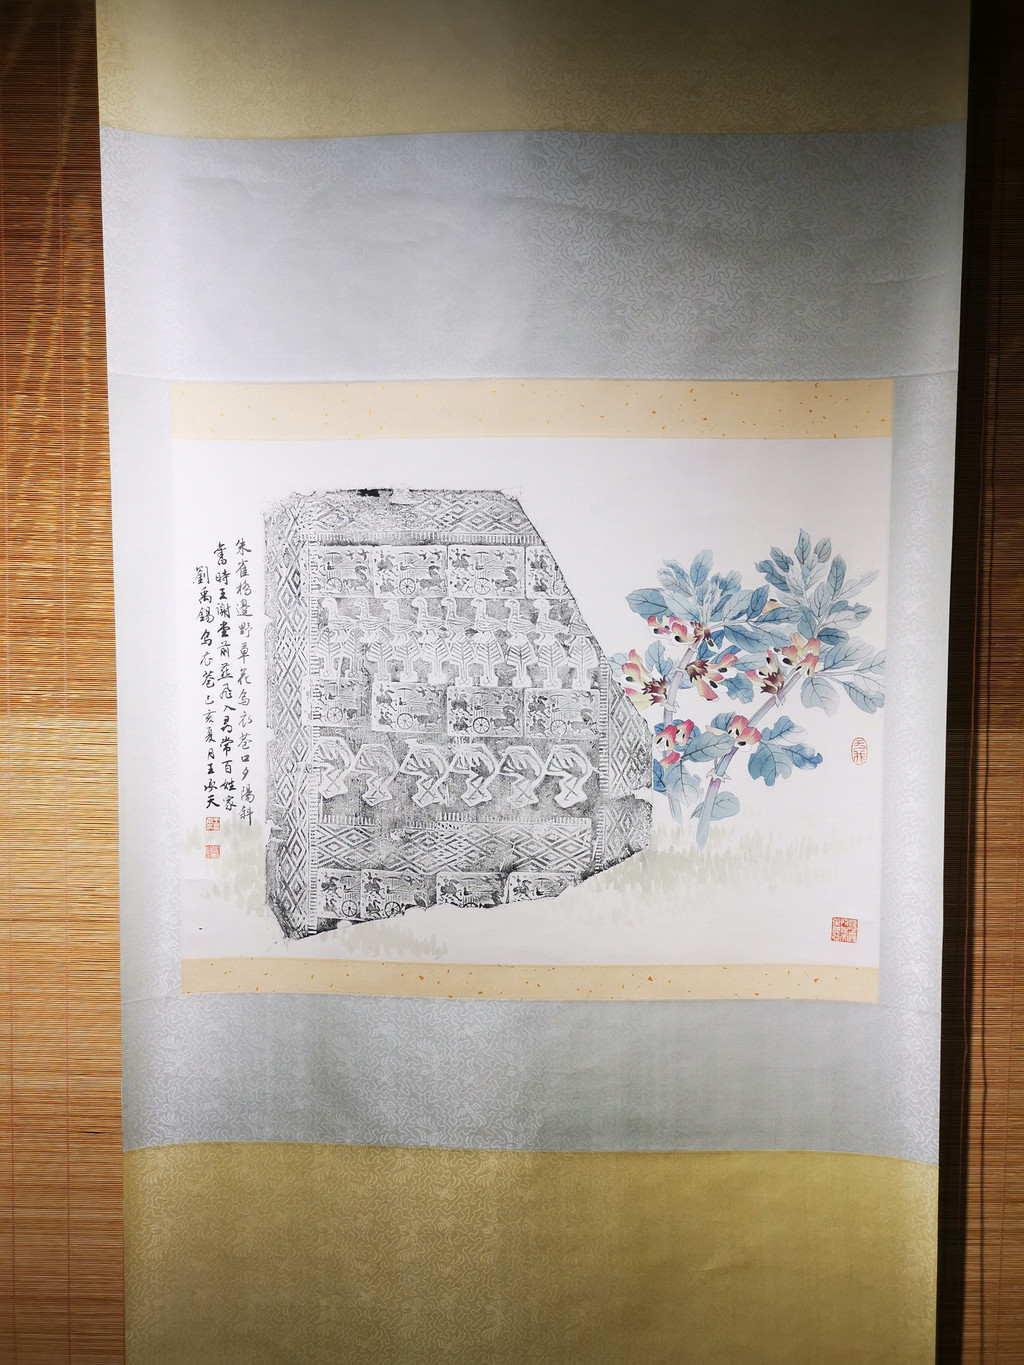 朱雀橋邊野草花烏衣巷口夕陽斜
舊時王謝堂前燕飛入尋常百姓家
劉禹錫烏衣巷己亥夏月王
天